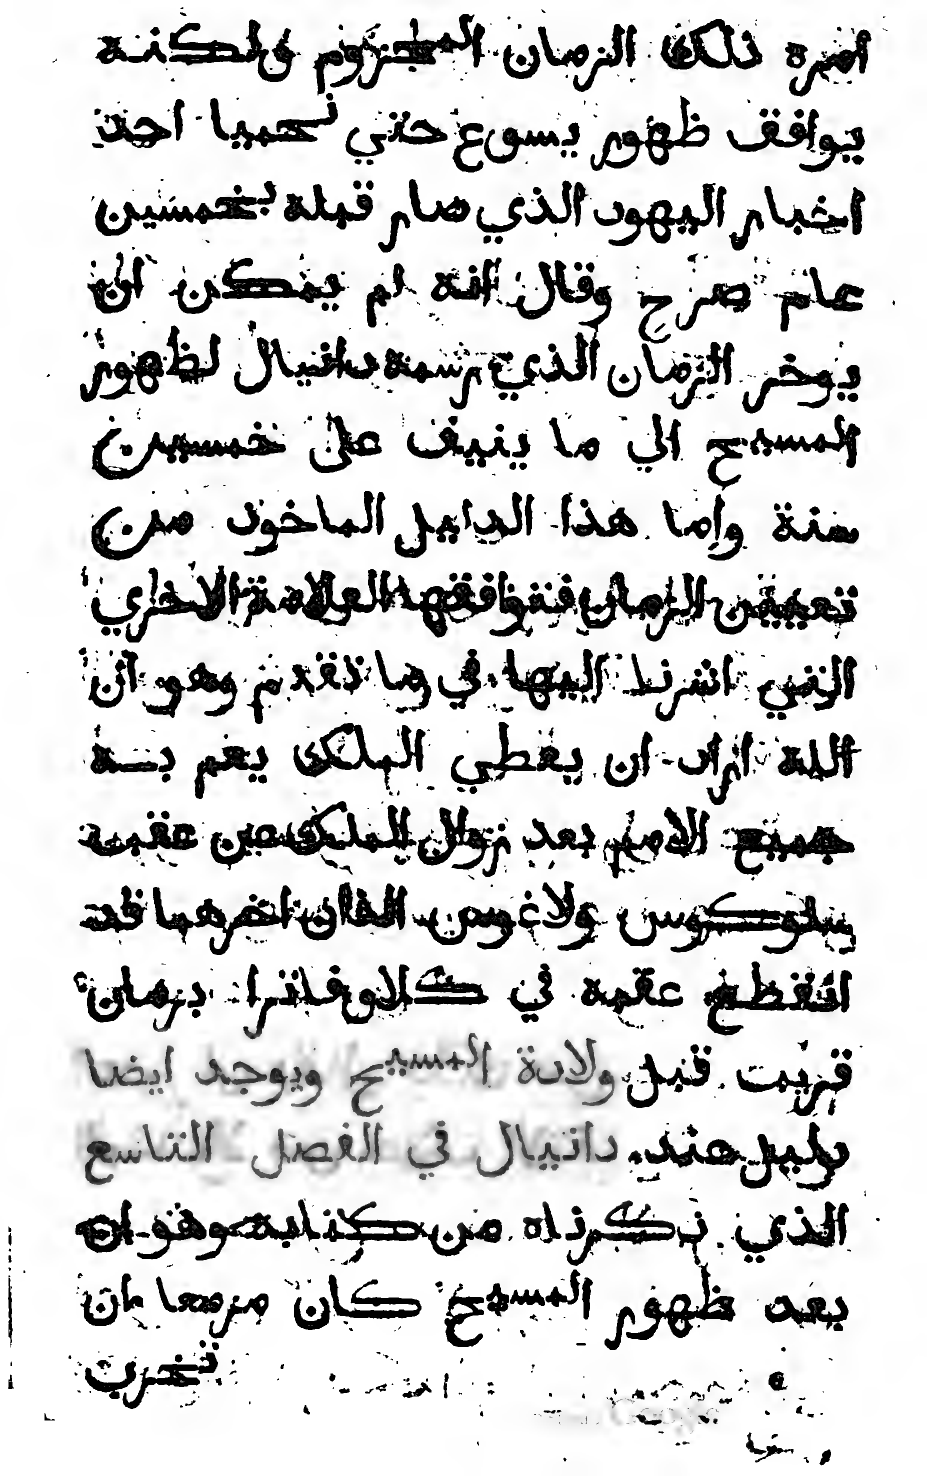 امره ذلك الزمان المجزوم ولكنه
يوافق ظهور يسوع حتي نحميا احد
احبار اليهود الذي صار قبله بخمسين
عام صرح وقال انه لم يمكن ان
يوخر الزمان الذي رسمه دانيال لظهور
المسيح الي ما ينيف علي خمسين
سنة واما هذا الدليل الماخود من
تعيين الزمان فتوافقها العلامة الاخري
التي اشرنا اليها في ما تقدم وهو ان
الله اراد ان يعطي الملك يعم به
جميع الامم بعد زوال الملك من عقبه
سلوكوس ولاغوس اللذان اخرهما قد
انقطع عقبه في كلاوفاترا بزمان
قريب قبل ولادة المسيح ويوجد ايضا
دليل عند دانيال في الفصل التاسع
الذي ذكرناه من كتابه وهو ان
بعد ظهور المسيح كان مزمعا ان
تخرب